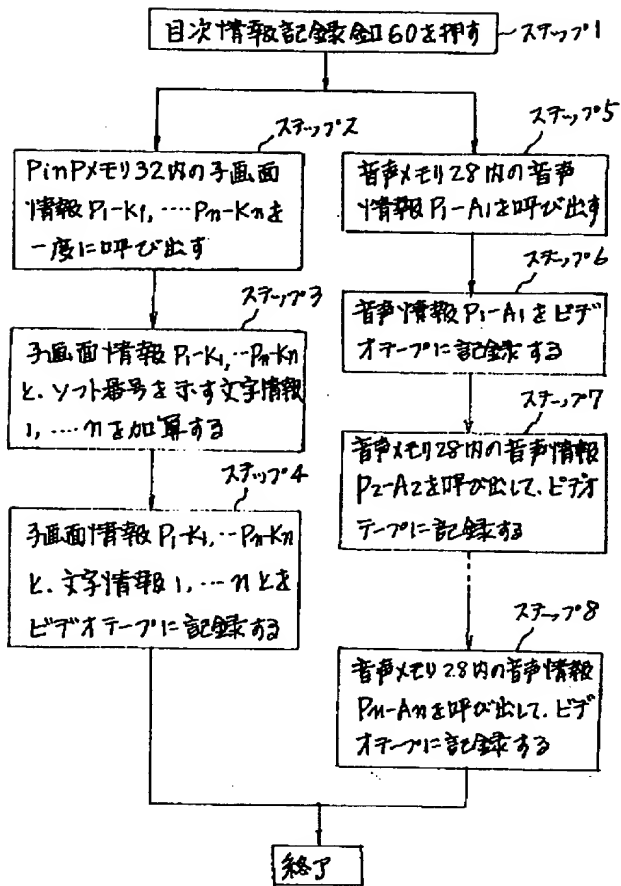 目次情報記録釦60を押す
ステップ1
ステップ2
PinPメモリ32内の子画面
情報P1-K1,‥‥Pn-Knを
一度に呼び出す
ステップ3
子画面情報P1-K1,‥Pn-Kn
と、ソフト番号を示す文字情報
1,‥‥nを加算する
ステップ4
子画面情報P1-K1,‥Pn-Kn
と、文字情報1,‥‥nとを
ビデオテープに記録する
ステップ5
音声メモリ28内の音声
情報P1-A1を呼び出す
ステップ6
音声情報P1-A1をビデ
オテープに記録する
ステップ7
音声メモリ28内の音声情報
P2-A2を呼び出して、ビデオ
テープに記録する
ステップ8
音声メモリ28内の音声情報
Pn-Anを呼び出して、ビデ
オテープに記録する
終了